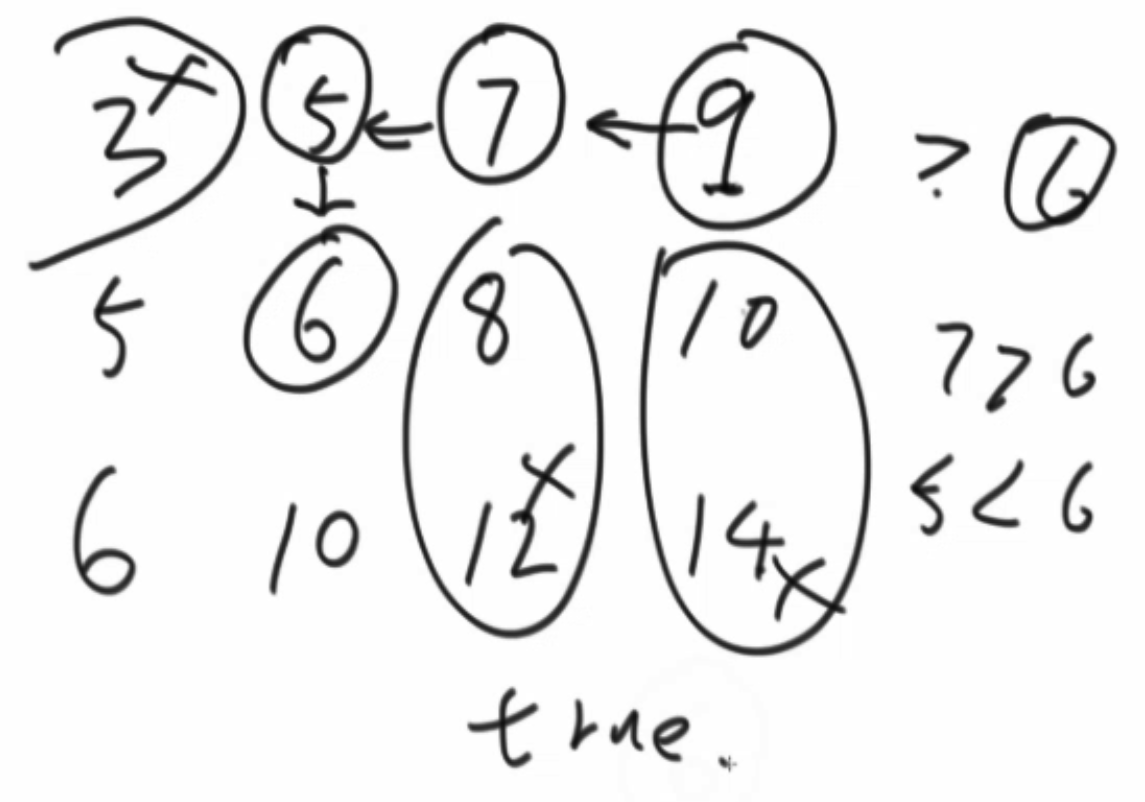 3 5 ← 7 ← 9 > 6
↓
5 6 8 10 7 > 6
6 10 12 14 5 < 6
true.